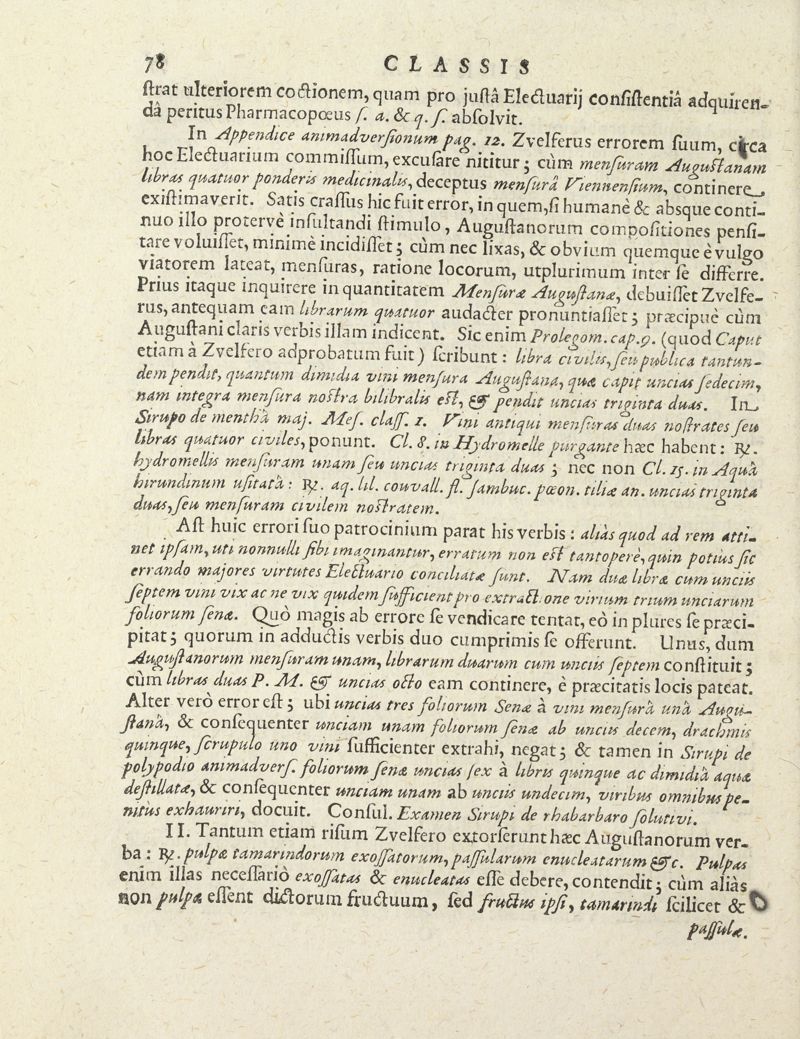 78 CLASSIS
ſtrat ulteriorem coctionem, quam pro juſtâ Electuarij conſiſtentiâ adquiren-
dâ peritus Pharmacopœus ſ. a. & q. ſ. abſolvit.
In Appendice animadverſionum pag. 12. Zvelferus errorem ſuum, circa
hoc Electuarium commiſſum, excuſare nititur; cùm menſuram Auguſtanam
libras quatuor ponderis medicinalis, deceptus menſurâ Viennenſium, continere
exiſtimaverit. Satis craſſus hic fuit error, in quem, ſi humanè & absque conti-
nuo illo protervè inſultandi ſtimulo, Auguſtanorum compoſitiones penſi-
tare voluiſſet, minimè incidiſſet; cùm nec lixas, & obvium quemque è vulgo
viatorem lateat, menſuras, ratione locorum, utplurimum inter ſe differre.
Prius itaque inquirere in quantitatem Menſuræ Auguſtanæ, debuiſſet Zvelfe-
rus, antequam eam librarum quatuor audacter pronuntiaſſet; præcipuè cùm
Auguſtani claris verbis illam indicent. Sic enim Prolegom. cap. 9. (quod Caput
etiam à Zvelfero adprobatum fuit) ſcribunt: libra civilis, ſeu publica tantun-
dem pendit, quantum dimidia vini menſura Auguſtana, quæ capit uncias ſedecim,
nam integra menſura noſtra bilibralis eſt, & pendit uncias triginta duas. In
Sirupo de menthâ maj. Meſ. claſſ. 1. Vini antiqui menſuras duas noſtrates ſeu
libras quatuor civiles, ponunt. Cl. 8. in Hydromelle purgante hæc habent: ℞.
hydromellis menſuram unam ſeu uncias triginta duas; nec non Cl. 15. in Aquâ
hirundinum uſitatâ: ℞. aq. lil. convall. fl. ſambuc. pœon. tiliæ an. uncias triginta
duas, ſeu menſuram civilem noſtratem.
Aſt huic errori ſuo patrocinium parat his verbis: aliàs quod ad rem atti-
net ipſam, uti nonnulli ſibi imaginantur, erratum non eſt tantoperè, quin potius ſic
errando majores virtutes Electuario conciliatæ ſunt. Nam duæ libræ cum unciis
ſeptem vini vix ac ne vix quidem ſufficient pro extractione virium trium unciarum
foliorum ſenæ. Quò magis ab errore ſe vendicare tentat, eò in plures ſe præci-
pitat; quorum in adductis verbis duo cumprimis ſe offerunt. Unus, dum
Auguſtanorum menſuram unam, librarum duarum cum unciis ſeptem conſtituit;
cùm libras duas P. M. & uncias octo eam continere, è præcitatis locis pateat.
Alter verò error eſt; ubi uncias tres foliorum Senæ à vini menſurâ unâ Augu-
ſtanâ, & conſequenter unciam unam foliorum ſenæ ab unciis decem, drachmis
quinque, ſcrupulo uno vini ſufficienter extrahi, negat; & tamen in Sirupi de
polypodio animadverſ. foliorum ſenæ uncias ſex à libris quinque ac dimidiâ aquæ
deſtillatæ, & conſequenter unciam unam ab unciis undecim, viribus omnibus pe-
nitus exhauriri, docuit. Conſul. Examen Sirupi de rhabarbaro ſolutivi.
II. Tantum etiam riſum Zvelfero extorſerunt hæc Auguſtanorum ver-
ba: ℞. pulpæ tamarindorum exoſſatorum, paſſularum enucleatarum &c. Pulpas
enim illas neceſſariò exoſſatas & enucleatas eſſe debere, contendit; cùm aliàs
non pulpæ eſſent dictorum fructuum, ſed fructus ipſi, tamarindi ſcilicet &
paſſulæ.